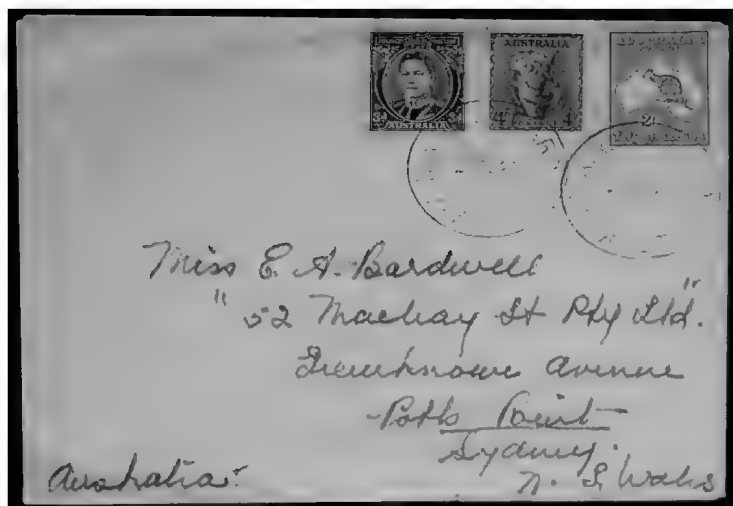 AUSTRALIA
3d 3d
AUSTRALIA
4d 4d
AUSTRALIA
2/-
Miss E. A. Bardwell
"52 Macleay St Pty Ltd."
Greenknowe Avenue
Potts Point
Sydney.
N. S. Wales
Australia.